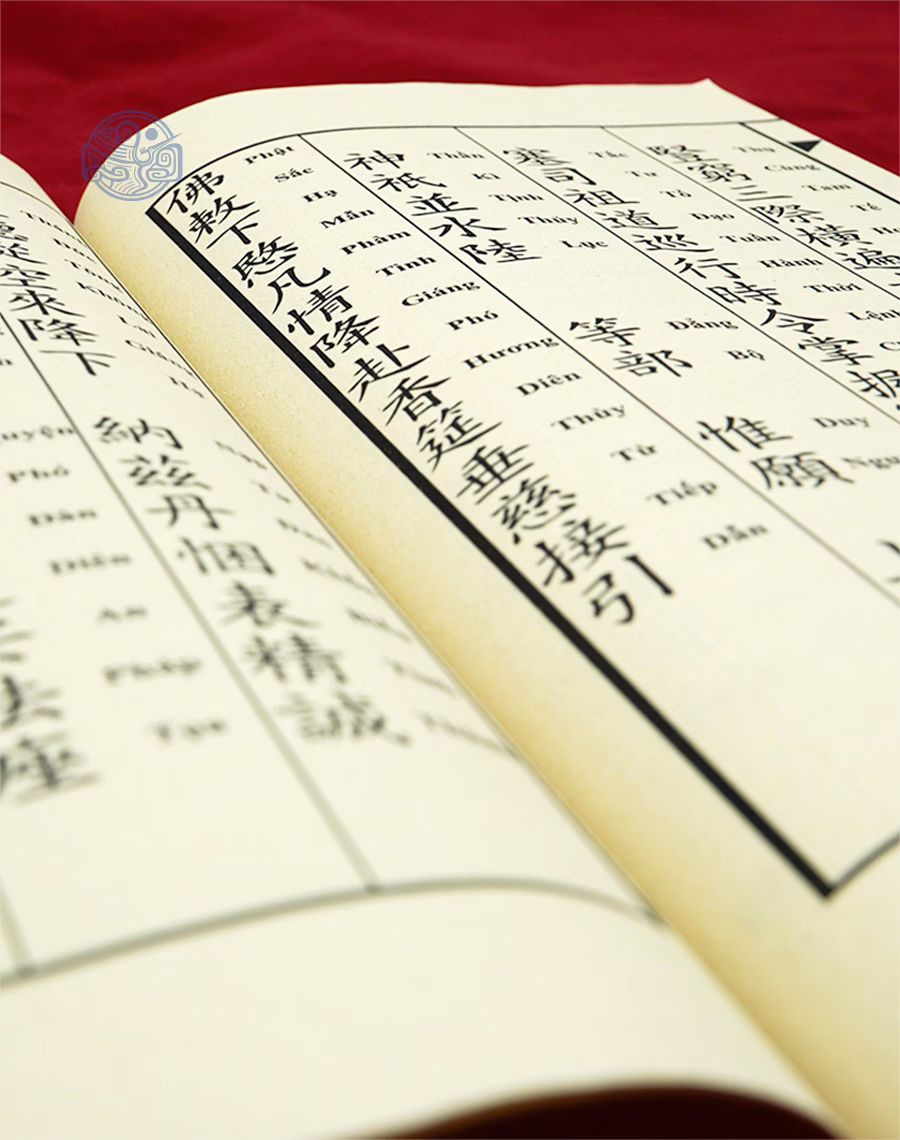 豎窮三際橫遍
Thụ Cùng Tam Tế
塞司祖道巡行時令掌握
Tắc Tư Tổ Đạo Tuần Hành Thời Lệnh
神祇並水陸 等部 惟願
Thần Kì Tịnh Thủy Lục Đẳng Bộ Duy
佛敕下愍凡情降赴香筵垂慈接引
Phật Sắc Hạ Mẫn Phàm Tình Giáng Phó Hương Diên Thùy Từ Tiếp Dẫn
空來降下 納茲丹悃表精誠
法座
Phó Đàn Diên An Pháp Tọa